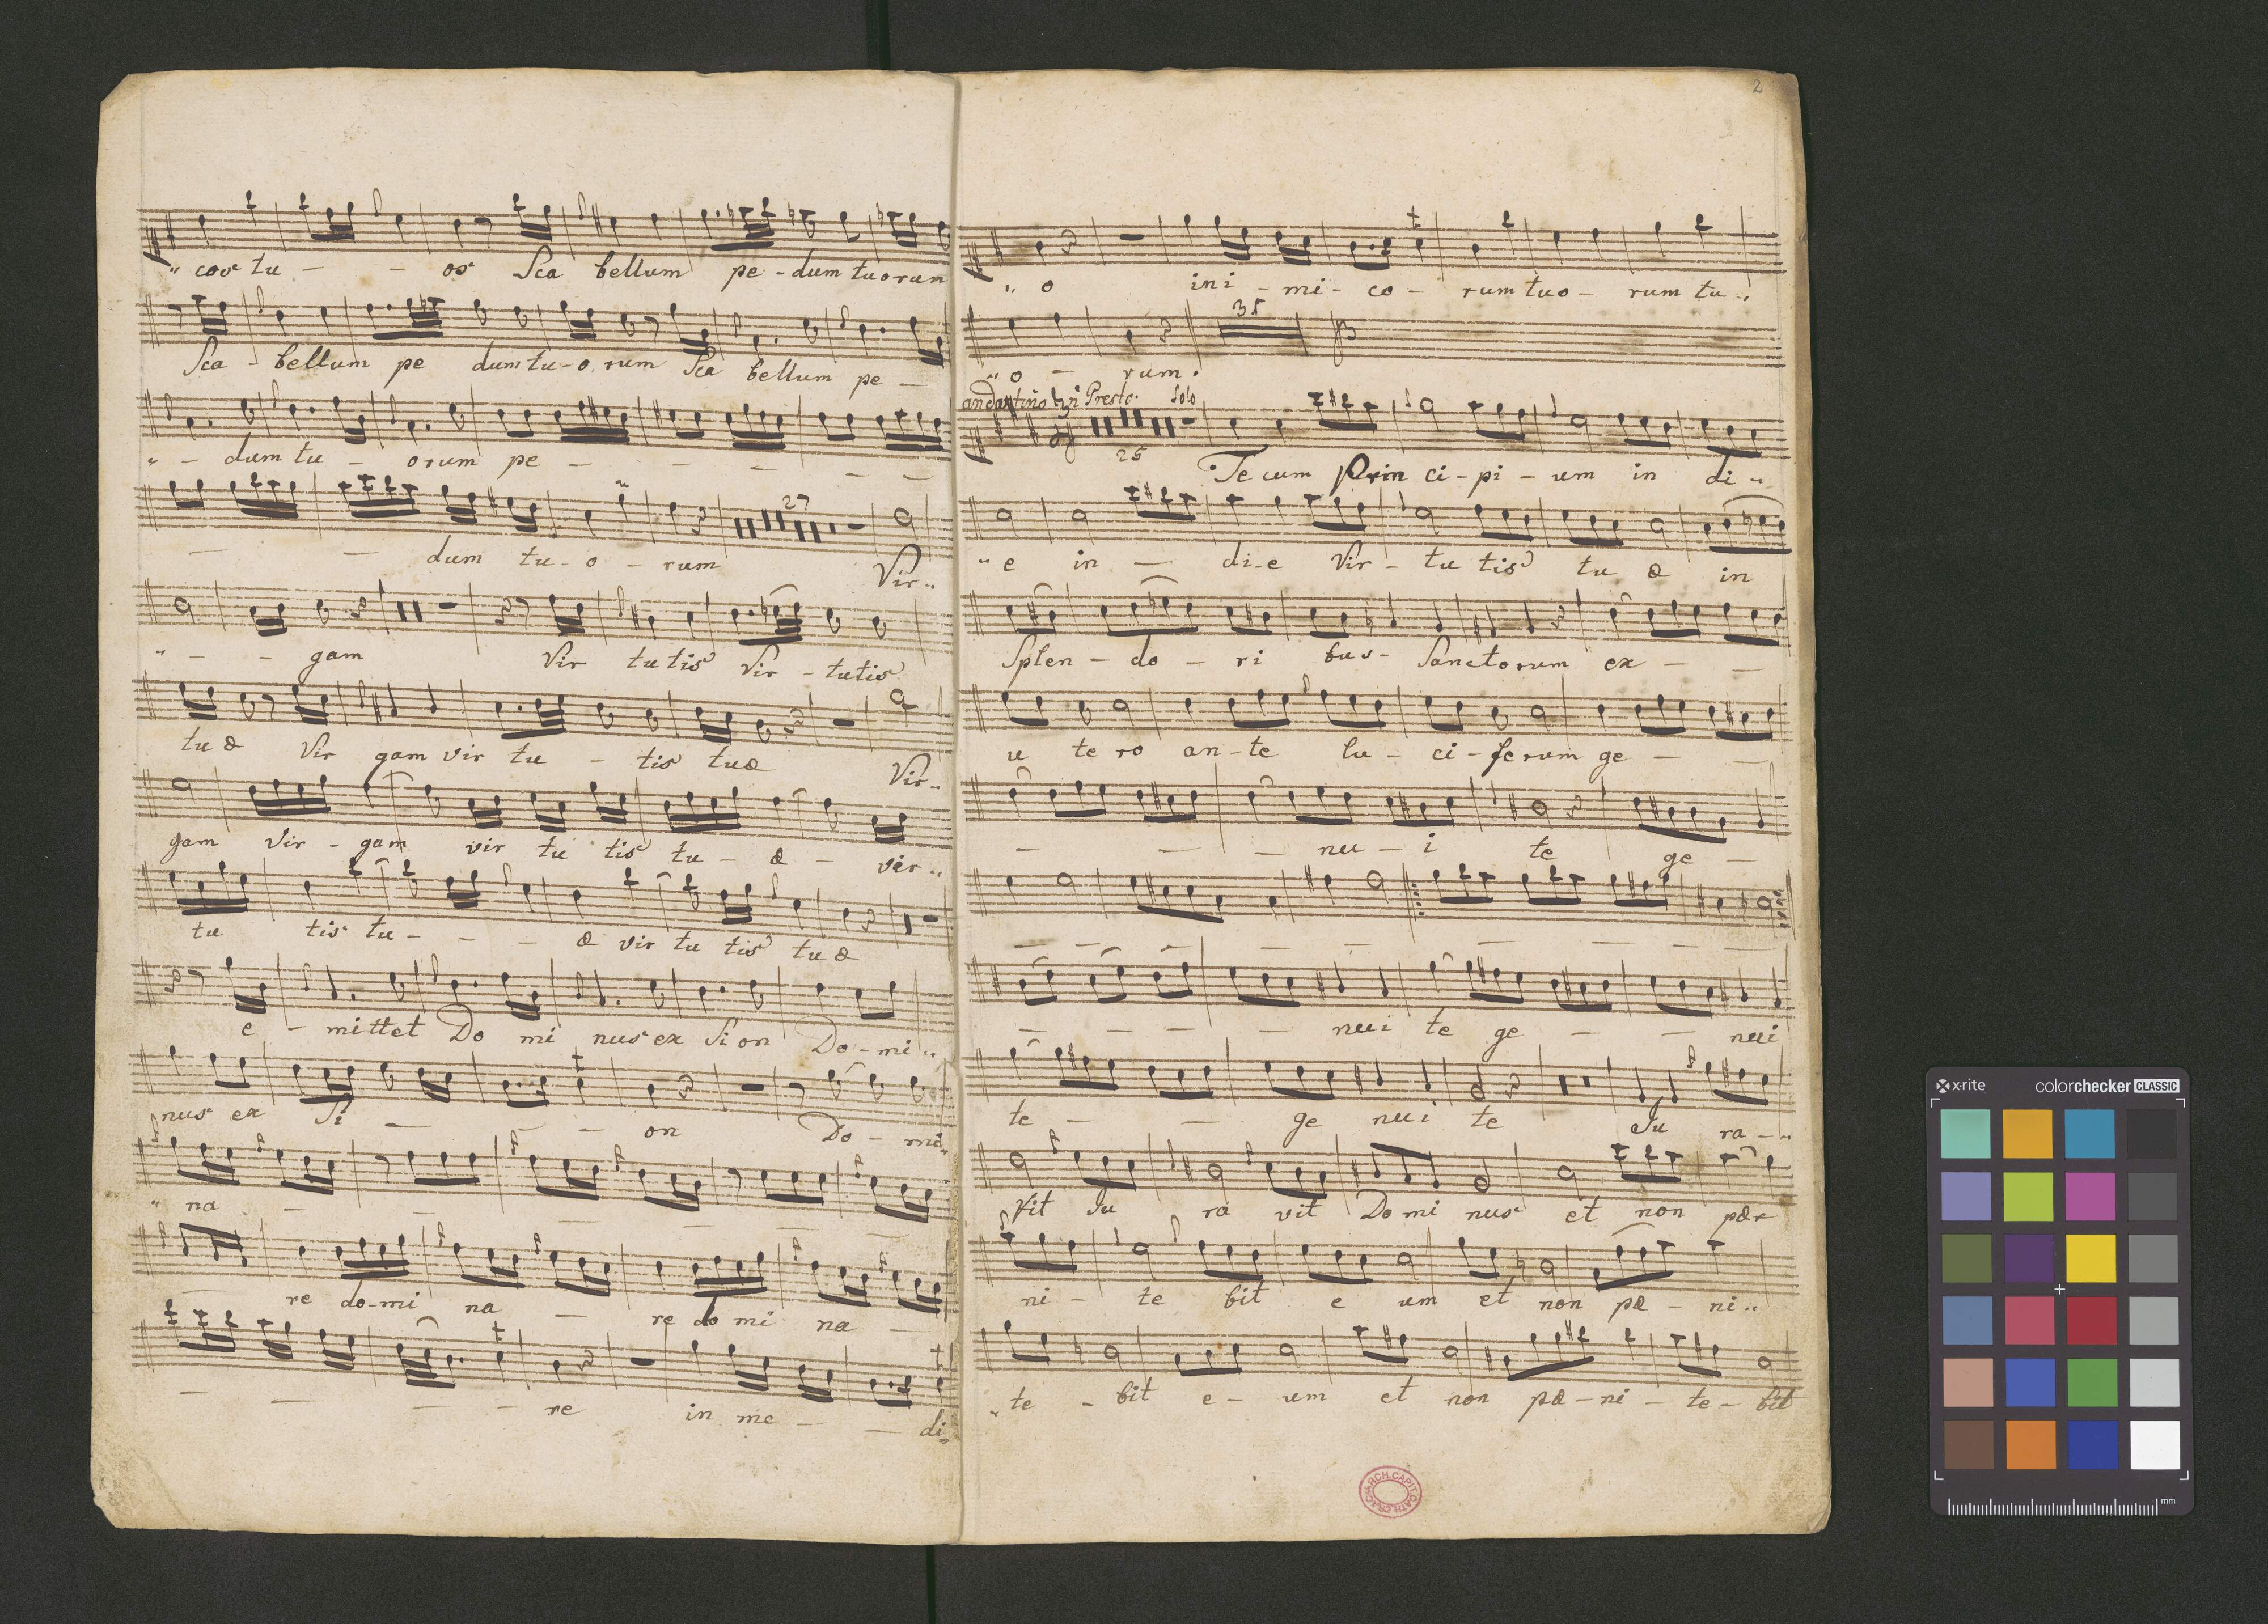 „ cos tu - - os Sca bellum pe - dum tuorum
Sca - bellum pe dum tu - o rum Sca bellum pe -
„ - dum tu - orum pe - - - - -
- - dum tu - o - rum 27 Vir „
„ - - gam Vir tutis Vir - tutis
tuæ Vir gam vir tu - tis tuæ Vir „
gam Vir - gam vir tu tis tu - æ - vir „
tu tis tu - - - æ vir tu tis tuæ
e - mittet Do mi nus ex Si on Do - mi „
nus ex Si - - - on Do - mi „
„ na - - - - - -
- re do - mi na - re do mi na -
- - - - re in me - - di „
2
„ o ini - mi - co - rum tuo - rum tu „
35
„ o - rum.
Presto. Solo
25
Te cum Prin ci - pi - um in di „
„ e in - di - e Vir - tu tis tu æ in
Splen - do - ri bus - Sanctorum ex -
u te ro an - te lu - ci - ferum ge - -
- - - nu - i te ge -
- - - - - - -
- - - - nui te ge - - nui
te - - ge nui te Iu ra - „
Vit Iu ra vit Do mi nus et non pær
ni - te bit e um et non pæ - ni „
„ te - bit e - um et non pæ - ni - te - bit
ARCH. CAPIT. CATH. CRAC.
x-rite colorchecker CLASSIC
mm